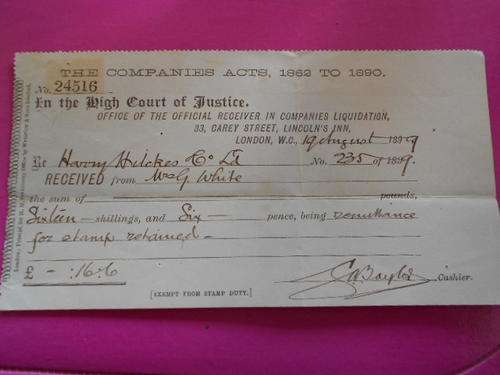 THE COMPANIES ACTS, 1862 TO 1890.
No. 24516
In the High Court of Justice.
OFFICE OF THE OFFICIAL RECEIVER IN COMPANIES LIQUIDATION,
33, CAREY STREET, LINCOLN'S INN,
LONDON, W.C., 19 August 1899
Re Harry Hilckes Co Ld No. 235 of 1899.
RECEIVED from Mrs G. White
the sum of pounds,
Sixteen shillings, and Six pence, being remittance
for stamp retained
£ - : 16 : 6
Cashier.
[EXEMPT FROM STAMP DUTY.]